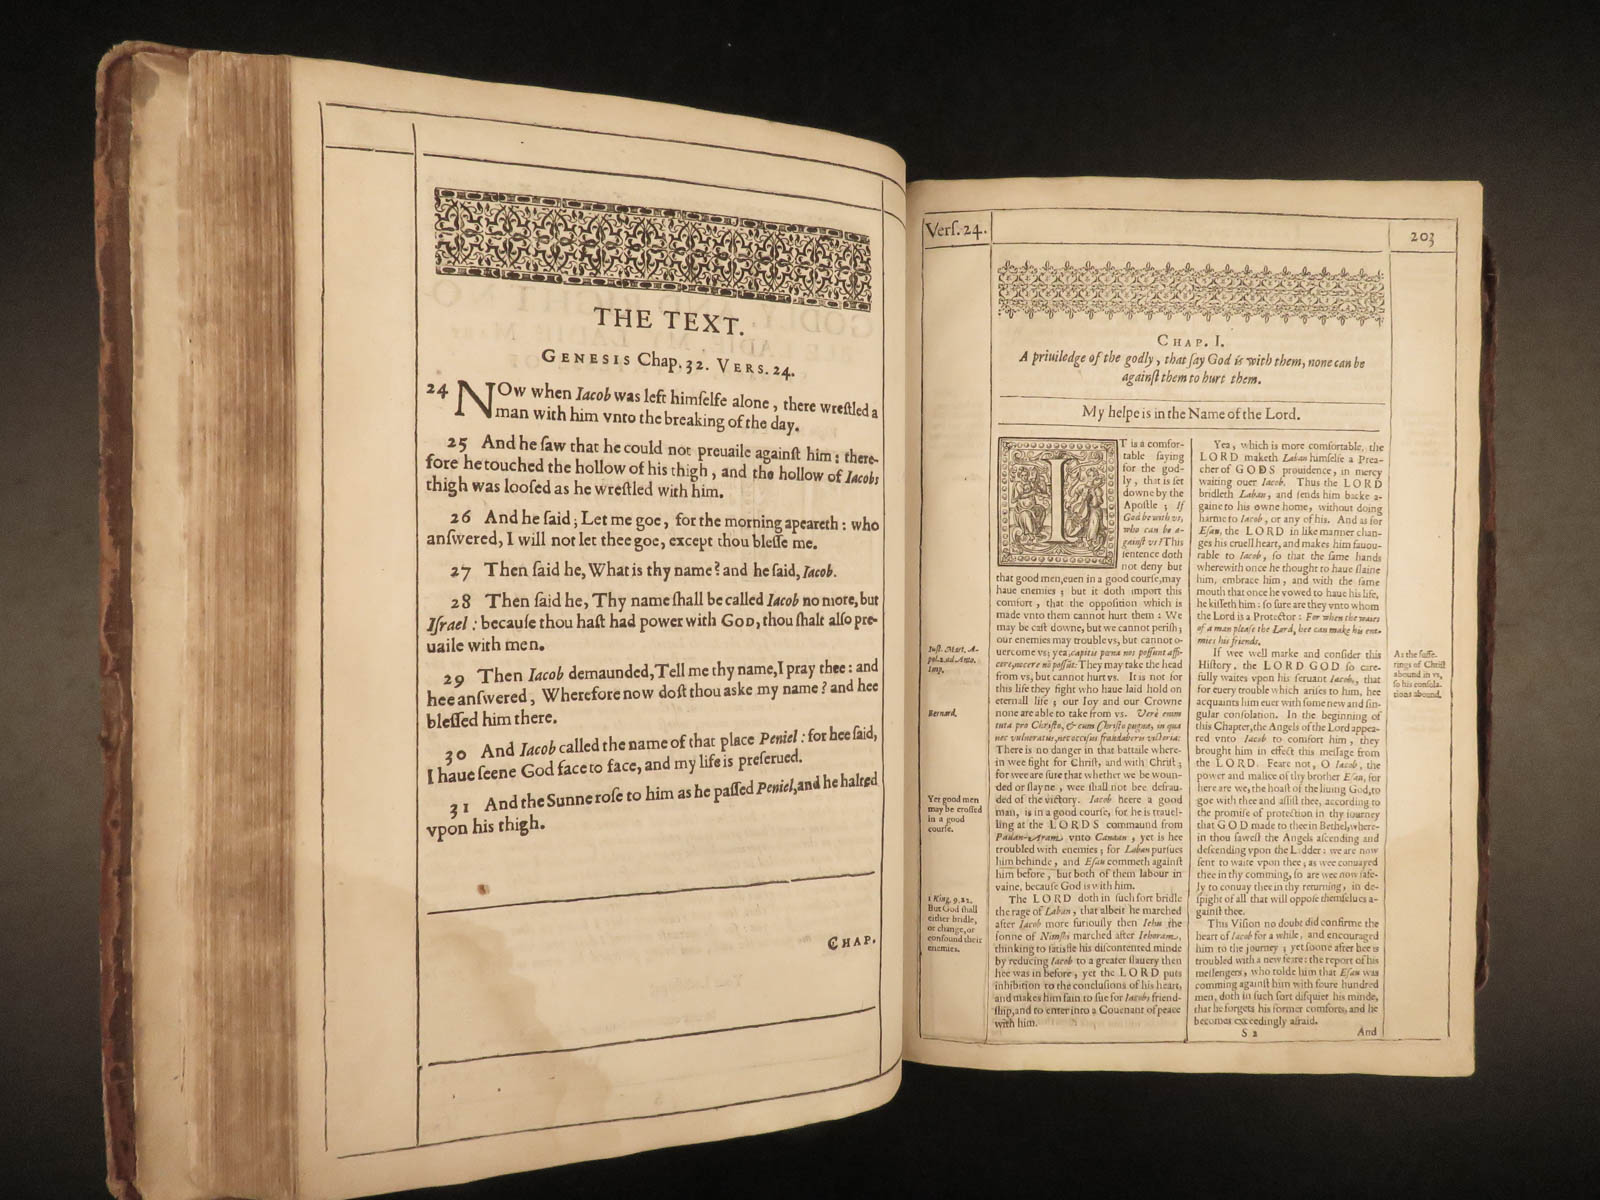 THE TEXT.
GENESIS Chap. 32. VERS. 24.
24 NOw when Iacob was left himſelfe alone, there wreſtled a
man with him vnto the breaking of the day.
25 And he ſaw that he could not preuaile againſt him: there-
fore he touched the hollow of his thigh, and the hollow of Iacobs
thigh was looſed as he wreſtled with him.
26 And he ſaid; Let me goe, for the morning apeareth: who
anſwered, I will not let thee goe, except thou bleſſe me.
27 Then ſaid he, What is thy name? and he ſaid, Iacob.
28 Then ſaid he, Thy name ſhall be called Iacob no more, but
Iſrael: becauſe thou haſt had power with GOD, thou ſhalt alſo pre-
uaile with men.
29 Then Iacob demaunded, Tell me thy name, I pray thee: and
hee anſwered, Wherefore now doſt thou aske my name? and hee
bleſſed him there.
30 And Iacob called the name of that place Peniel: for hee ſaid,
I haue ſeene God face to face, and my life is preſerued.
31 And the Sunne roſe to him as he paſſed Peniel, and he halted
vpon his thigh.
CHAP.
Verſ. 24.
203
CHAP. I.
A priuiledge of the godly, that ſay God is with them, none can be
againſt them to hurt them.
My helpe is in the Name of the Lord.
IT is a comfor-
table ſaying
for the god-
ly, that is ſet
downe by the
Apoſtle; If
God be with vs,
who can be a-
gainſt vs? This
ſentence doth
not deny but
that good men, euen in a good courſe, may
haue enemies; but it doth import this
comfort, that the oppoſition which is
made vnto them cannot hurt them: We
may be caſt downe, but we cannot periſh;
our enemies may trouble vs, but cannot o-
uercome vs; yea, capitis pœna nos poſſunt affi-
cere, nocere nō poſſūt: They may take the head
from vs, but cannot hurt vs. It is not for
this life they fight who haue laid hold on
eternall life; our Ioy and our Crowne
none are able to take from vs. Verè enim
tuta pro Chriſto, & cum Chriſto pugna, in qua
nec vulneratus, nec occiſus fraudaberis victoria:
There is no danger in that battaile where-
in wee fight for Chriſt, and with Chriſt;
for wee are ſure that whether we be woun-
ded or ſlayne, wee ſhall not bee defrau-
ded of the victory. Iacob heere a good
man, is in a good courſe, for he is trauel-
ling at the LORDS commaund from
Padan-Aram vnto Canaan, yet is hee
troubled with enemies; for Laban purſues
him behinde, and Eſau commeth againſt
him before, but both of them labour in
vaine, becauſe God is with him.
The LORD doth in ſuch ſort bridle
the rage of Laban, that albeit he marched
after Iacob more furiouſly then Iehu the
ſonne of Nimſhi marched after Iehoram,
thinking to ſatisfie his diſcontented minde
by reducing Iacob to a greater ſlauery then
hee was in before, yet the LORD puts
inhibition to the concluſions of his heart,
and makes him fain to ſue for Iacobs friend-
ſhip, and to enter into a Couenant of peace
with him.
Iuſt. Mart. A-
pol. 2. ad. Anto.
Imp.
Bernard.
Yet good men
may be croſſed
in a good
courſe.
1 King. 9. 22.
But God ſhall
either bridle,
or change, or
confound their
enemies.
Yea, which is more comfortable, the
LORD maketh Laban himſelfe a Prea-
cher of GODS prouidence, in mercy
waiting ouer Iacob. Thus the LORD
bridleth Laban, and ſends him backe a-
gaine to his owne home, without doing
harme to Iacob, or any of his. And as for
Eſau, the LORD in like manner chan-
ges his cruell heart, and makes him fauou-
rable to Iacob, ſo that the ſame hands
wherewith once he thought to haue ſlaine
him, embrace him, and with the ſame
mouth that once he vowed to haue his life,
he kiſſeth him: ſo ſure are they vnto whom
the Lord is a Protector: For when the waies
of a man pleaſe the Lord, hee can make his ene-
mies his friends.
If wee well marke and conſider this
Hiſtory, the LORD GOD ſo care-
fully waites vpon his ſeruant Iacob, that
for euery trouble which ariſes to him, hee
acquaints him euer with ſome new and ſin-
gular conſolation. In the beginning of
this Chapter, the Angels of the Lord appea-
red vnto Iacob to comfort him, they
brought him in effect this meſſage from
the LORD. Feare not, O Iacob, the
power and malice of thy brother Eſau, for
here are we, the hoaſt of the liuing God, to
goe with thee and aſſiſt thee, according to
the promiſe of protection in thy iourney
that GOD made to thee in Bethel, where-
in thou ſaweſt the Angels aſcending and
deſcending vpon the Ladder: we are now
ſent to waite vpon thee; as wee conuayed
thee in thy comming, ſo are wee now ſafe-
ly to conuay thee in thy returning, in de-
ſpight of all that will oppoſe themſelues a-
gainſt thee.
This Viſion no doubt did confirme the
heart of Iacob for a while, and encouraged
him to the journey; yet ſoone after hee is
troubled with a new feare: the report of his
meſſengers, who tolde him that Eſau was
comming againſt him with foure hundred
men, doth in ſuch ſort diſquiet his minde,
that he forgets his former comforts, and he
becomes exceedingly afraid.
As the ſuffe-
rings of Chriſt
abound in vs,
ſo his conſola-
tions abound.
S 2
And